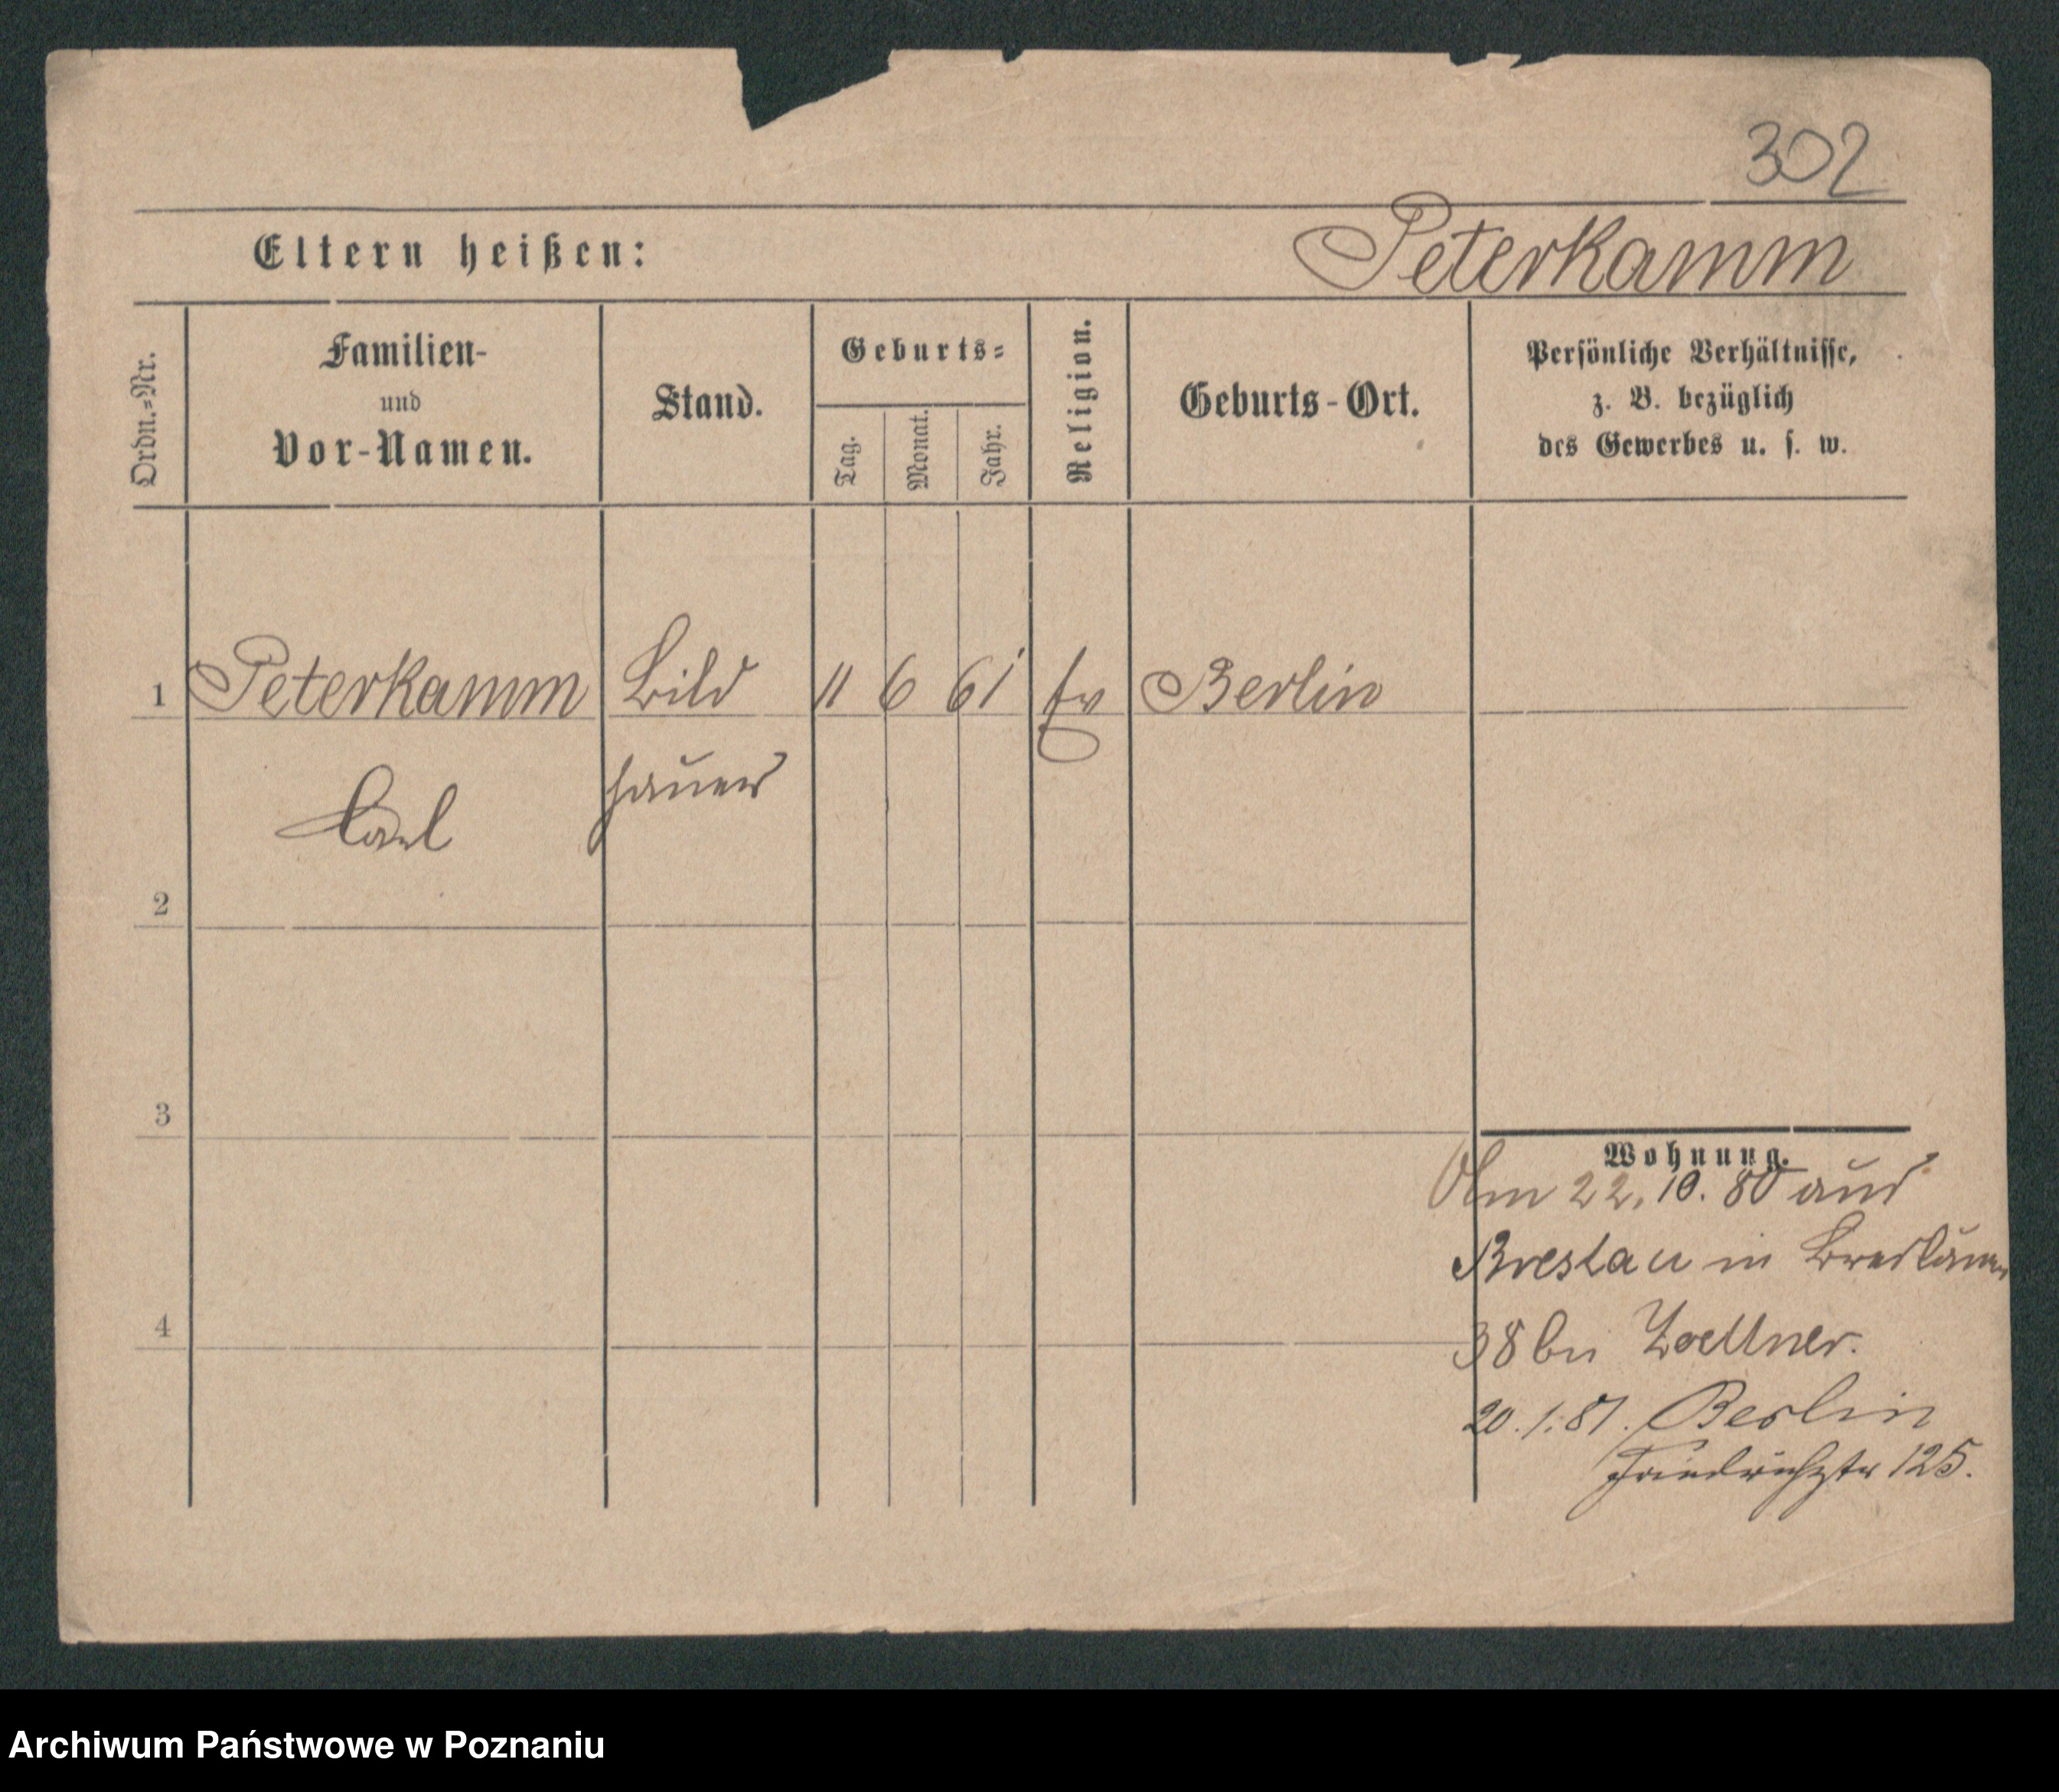 302
Eltern heißen: Peterkamm
Ordn.-Nr.
Familien-
und
Vor-Namen.
Stand.
Geburts-
Tag.
Monat.
Jahr.
Religion.
Geburts-Ort.
Persönliche Verhältnisse,
z. B. bezüglich
des Gewerbes u. s. w.
1 Peterkamm Bild 11 6 61 ev Berlin
Carl hauer
2
3
4
Wohnung.
22. 10. 80 aus
Breslau in
38 bei Zoellner.
20. 1. 81. Berlin
Friedrichstr 125.
Archiwum Państwowe w Poznaniu